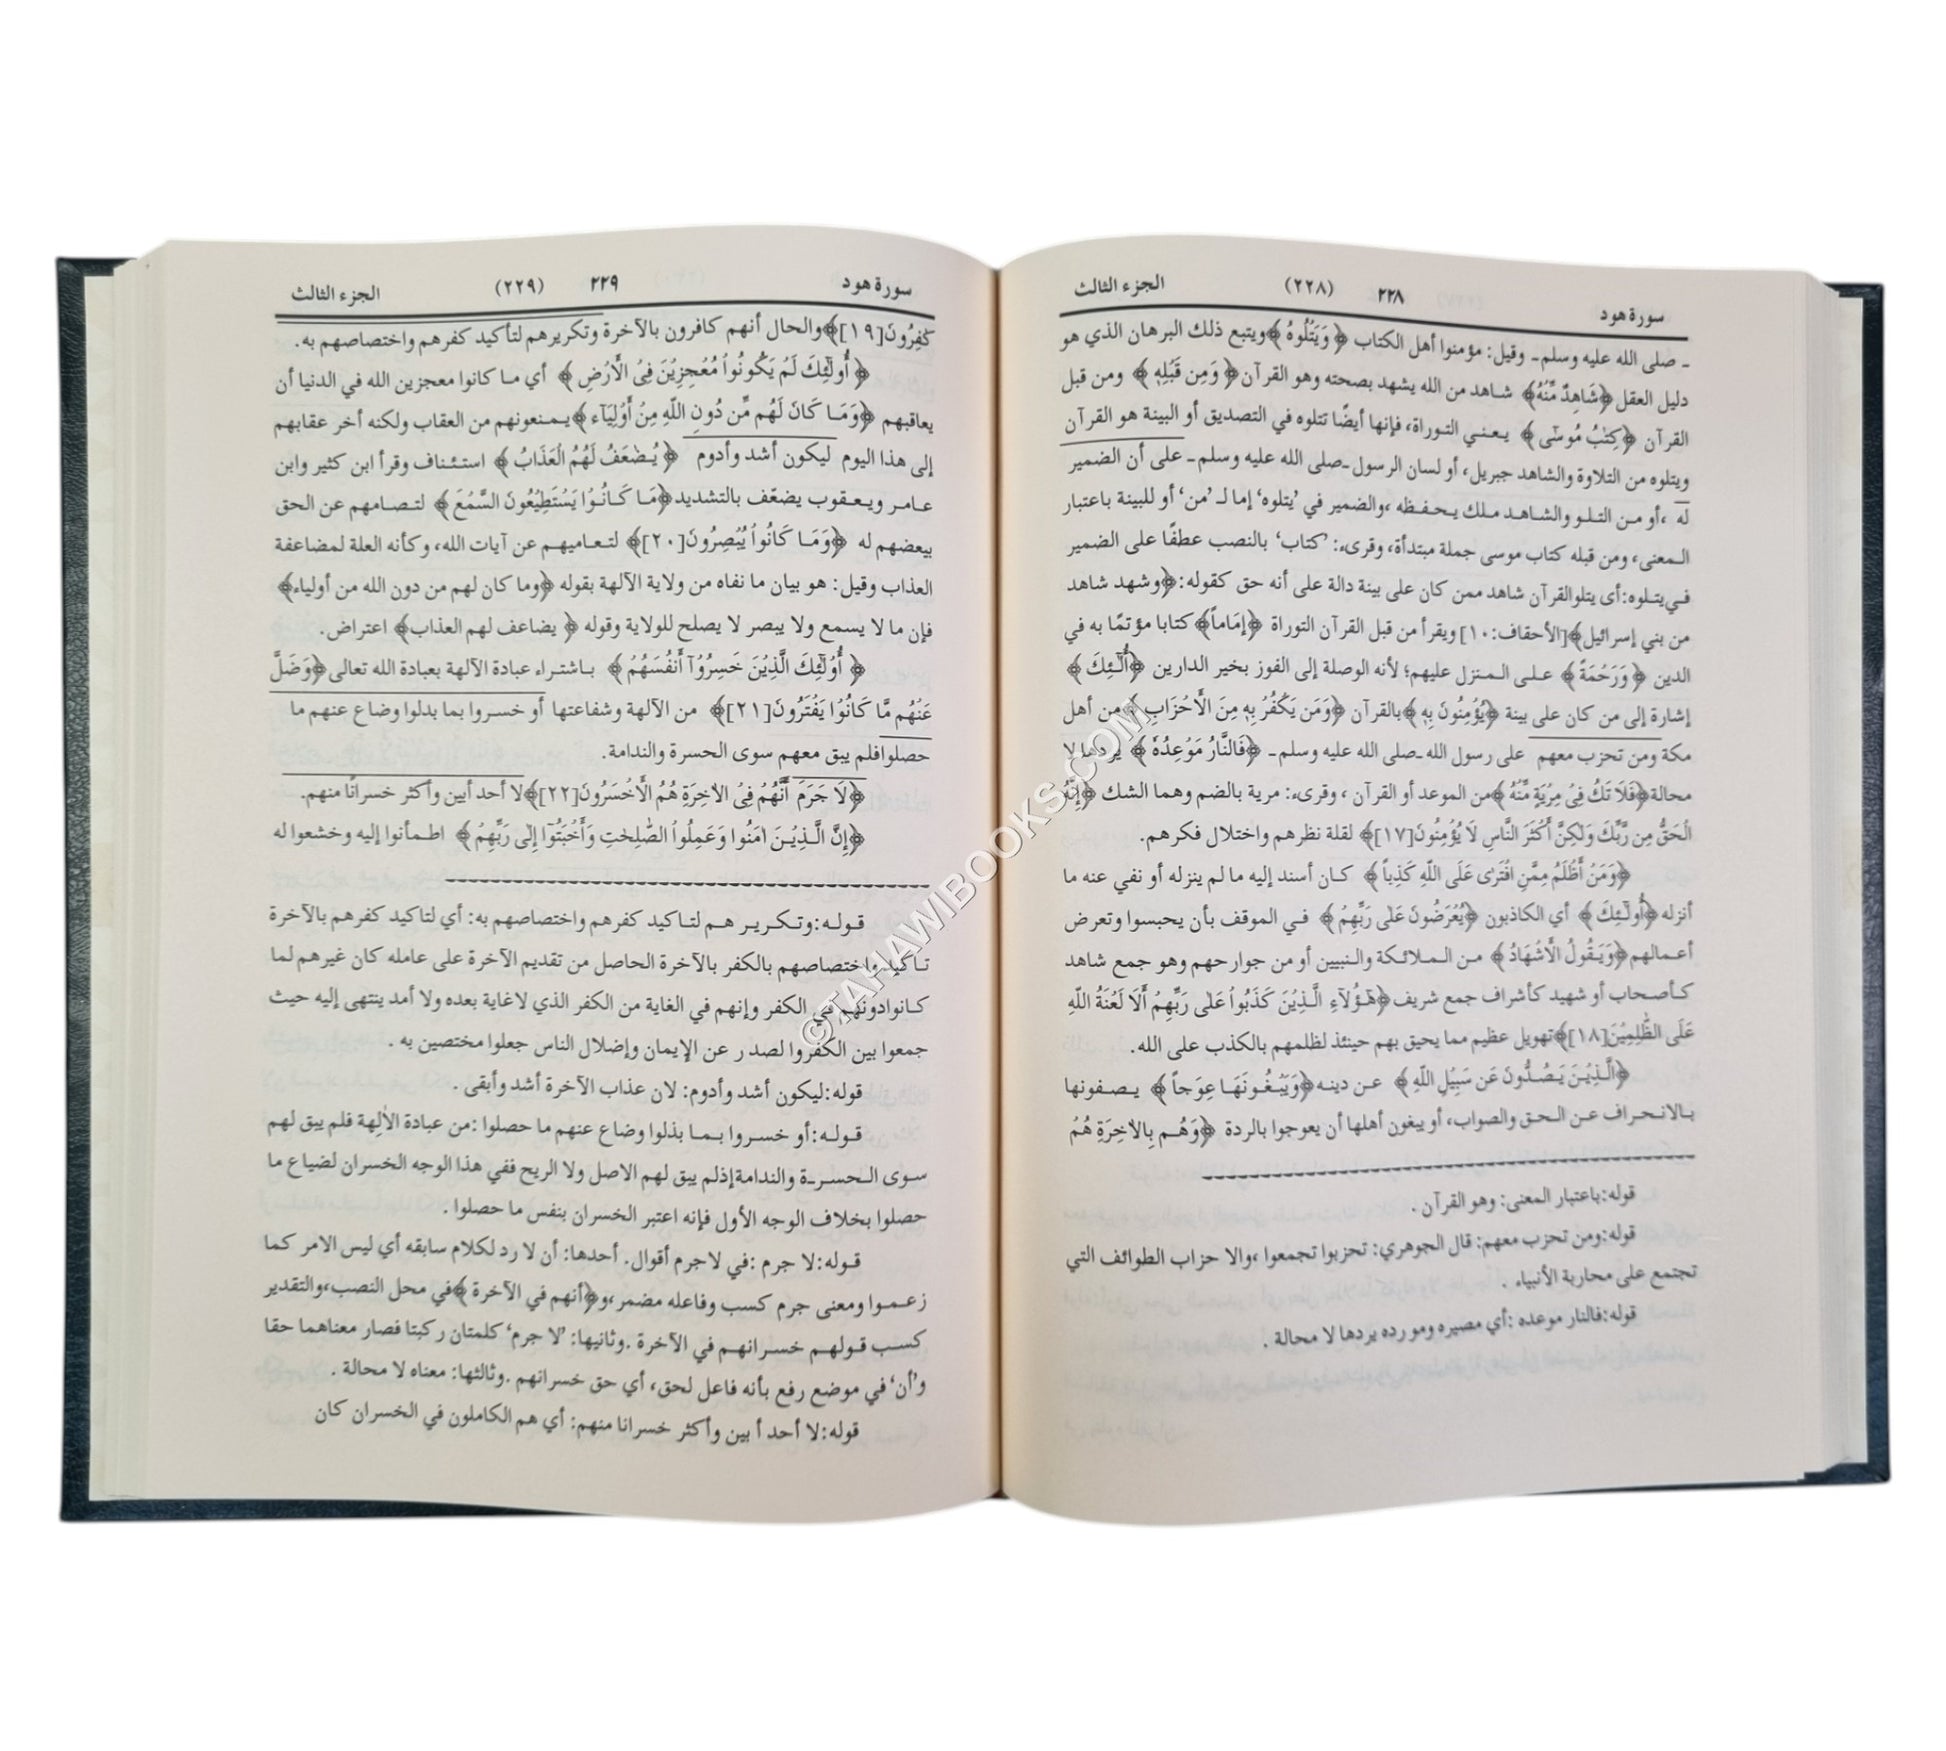 سورة هود ٢٢٨ (٢٢٨) الجزء الثالث
ـ صلى الله عليه وسلم ـ وقيل: مؤمنوا أهل الكتاب ﴿وَيَتْلُوهُ﴾ ويتبع ذلك البرهان الذي هو
دليل العقل ﴿شَاهِدٌ مِّنْهُ﴾ شاهد من الله يشهد بصحته وهو القرآن ﴿وَمِن قَبْلِهٖ﴾ ومن قبل
القرآن ﴿كِتٰبُ مُوسٰى﴾ يعني التوراة، فإنها أيضًا تتلوه في التصديق أو البينة هو القرآن
ويتلوه من التلاوة والشاهد جبريل، أو لسان الرسول ـ صلى الله عليه وسلم ـ على أن الضمير
له ،أو من التلو والشاهد ملك يحفظه ،والضمير في ’يتلوه‘ إما لـ ’من‘ أو للبينة باعتبار
المعنى، ومن قبله كتاب موسى جملة مبتدأة، وقرىء: ’كتاب‘ بالنصب عطفًا على الضمير
في يتلوه:أى يتلوالقرآن شاهد ممن كان على بينة دالة على أنه حق كقوله: ﴿وشهد شاهد
من بني إسرائيل﴾[الأحقاف:١٠] ويقرأ من قبل القرآن التوراة ﴿إِمَاماً﴾ كتابا مؤتمًا به في
الدين ﴿وَرَحْمَةً﴾ على المنزل عليهم؛ لأنه الوصلة إلى الفوز بخير الدارين ﴿أُلٰٓئِكَ﴾
إشارة إلى من كان على بينة ﴿يُؤْمِنُونَ بِهٖ﴾ بالقرآن ﴿وَمَن يَكْفُرْ بِهٖ مِنَ الْأَحْزَابِ﴾ من أهل
مكة ومن تحزب معهم على رسول الله ـ صلى الله عليه وسلم ـ ﴿فَالنَّارُ مَوْعِدُهٗ﴾ يردها لا
محالة ﴿فَلَا تَكُ فِىْ مِرْيَةٍ مِّنْهُ﴾ من الموعد أو القرآن ، وقرىء: مرية بالضم وهما الشك ﴿إِنَّهُ
الْحَقُّ مِن رَّبِّكَ وَلٰكِنَّ أَكْثَرَ النَّاسِ لَا يُؤْمِنُونَ[١٧]﴾ لقلة نظرهم واختلال فكرهم.
﴿وَمَنْ أَظْلَمُ مِمَّنِ افْتَرٰى عَلَى اللّٰهِ كَذِباً﴾ كان أسند إليه ما لم ينزله أو نفي عنه ما
أنزله ﴿أُولٰٓئِكَ﴾ أي الكاذبون ﴿يُعْرَضُونَ عَلٰى رَبِّهِمْ﴾ في الموقف بأن يحبسوا وتعرض
أعمالهم ﴿وَيَقُولُ الْأَشْهَادُ﴾ من الملائكة والنبيين أو من جوارحهم وهو جمع شاهد
كأصحاب أو شهيد كأشراف جمع شريف ﴿هٰٓؤُلَآءِ الَّذِيْنَ كَذَبُوا عَلٰى رَبِّهِمْ أَلَا لَعْنَةُ اللّٰهِ
عَلَى الظّٰلِمِيْنَ[١٨]﴾ تهويل عظيم مما يحيق بهم حينئذ لظلمهم بالكذب على الله.
﴿الَّذِيْنَ يَصُدُّونَ عَن سَبِيْلِ اللّٰهِ﴾ عن دينه ﴿وَيَبْغُونَهَا عِوَجاً﴾ يصفونها
بالانحراف عن الحق والصواب، أو يبغون أهلها أن يعوجوا بالردة ﴿وَهُم بِالْاٰخِرَةِ هُمْ
قوله:باعتبار المعنى: وهو القرآن .
قوله:ومن تحزب معهم: قال الجوهري: تحزبوا تجمعوا ،والا حزاب الطوائف التي
تجتمع على محاربة الأنبياء .
قوله:فالنار موعده :أي مصيره ومو رده يردها لا محالة .
سورة هود ٢٢٩ (٢٢٩) الجزء الثالث
كٰفِرُونَ[١٩]﴾ والحال أنهم كافرون بالآخرة وتكريرهم لتأكيد كفرهم واختصاصهم به.
﴿أُولٰٓئِكَ لَمْ يَكُونُوا مُعْجِزِيْنَ فِى الْأَرْضِ﴾ أي ما كانوا معجزين الله في الدنيا أن
يعاقبهم ﴿وَمَا كَانَ لَهُم مِّن دُونِ اللّٰهِ مِنْ أَوْلِيَآءَ﴾ يمنعونهم من العقاب ولكنه أخر عقابهم
إلى هذا اليوم ليكون أشد وأدوم ﴿يُضٰعَفُ لَهُمُ الْعَذَابُ﴾ استئناف وقرأ ابن كثير وابن
عامر ويعقوب يضعّف بالتشديد ﴿مَا كَانُوْا يَسْتَطِيْعُونَ السَّمْعَ﴾ لتصامهم عن الحق
ببعضهم له ﴿وَمَا كَانُوْا يُبْصِرُونَ[٢٠]﴾ لتعاميهم عن آيات الله، وكأنه العلة لمضاعفة
العذاب وقيل: هو بيان ما نفاه من ولاية الآلهة بقوله ﴿وما كان لهم من دون الله من أولياء﴾
فإن ما لا يسمع ولا يبصر لا يصلح للولاية وقوله ﴿يضاعف لهم العذاب﴾ اعتراض.
﴿أُوْلٰٓئِكَ الَّذِيْنَ خَسِرُوْٓا أَنفُسَهُمْ﴾ باشتراء عبادة الآلهة بعبادة الله تعالى ﴿وَضَلَّ
عَنْهُم مَّا كَانُوْا يَفْتَرُونَ[٢١]﴾ من الآلهة وشفاعتها أو خسروا بما بدلوا وضاع عنهم ما
حصلوا فلم يبق معهم سوى الحسرة والندامة.
﴿لَا جَرَمَ أَنَّهُمْ فِى الْاٰخِرَةِ هُمُ الْأَخْسَرُونَ[٢٢]﴾ لا أحد أبين وأكثر خسرانًا منهم.
﴿إِنَّ الَّذِيْنَ اٰمَنُوا وَعَمِلُوا الصّٰلِحٰتِ وَأَخْبَتُوْٓا إِلٰى رَبِّهِمْ﴾ اطمأنوا إليه وخشعوا له
قوله:وتكريرهم لتاكيد كفرهم واختصاصهم به: أي لتاكيد كفرهم بالآخرة
تاكيد واختصاصهم بالكفر بالآخرة الحاصل من تقديم الآخرة على عامله كان غيرهم لما
كانوادونهم في الكفر وإنهم في الغاية من الكفر الذي لاغاية بعده ولا أمد ينتهى إليه حيث
جمعوا بين الكفروا لصد ر عن الإيمان وإضلال الناس جعلوا مختصين به .
قوله:ليكون أشد وأدوم: لان عذاب الآخرة أشد وأبقى .
قوله:أو خسروا بما بذلوا وضاع عنهم ما حصلوا :من عبادة الألهة فلم يبق لهم
سوى الحسرة والندامة إذلم يبق لهم الاصل ولا الربح ففي هذا الوجه الخسران لضياع ما
حصلوا بخلاف الوجه الأول فإنه اعتبر الخسران بنفس ما حصلوا .
قوله:لا جرم :في لاجرم أقوال. أحدها: أن لا رد لكلام سابقه أي ليس الامر كما
زعموا ومعنى جرم كسب وفاعله مضمر،و﴿أنهم في الآخرة﴾ في محل النصب،والتقدير
كسب قولهم خسرانهم في الآخرة .وثانيها: ’لا جرم‘ كلمتان ركبتا فصار معناهما حقا
و’أن‘ في موضع رفع بأنه فاعل لحق، أي حق خسرانهم .وثالثها: معناه لا محالة .
قوله:لا أحد أ بين وأكثر خسرانا منهم: أي هم الكاملون في الخسران كان
©TAHAWIBOOKS.COM